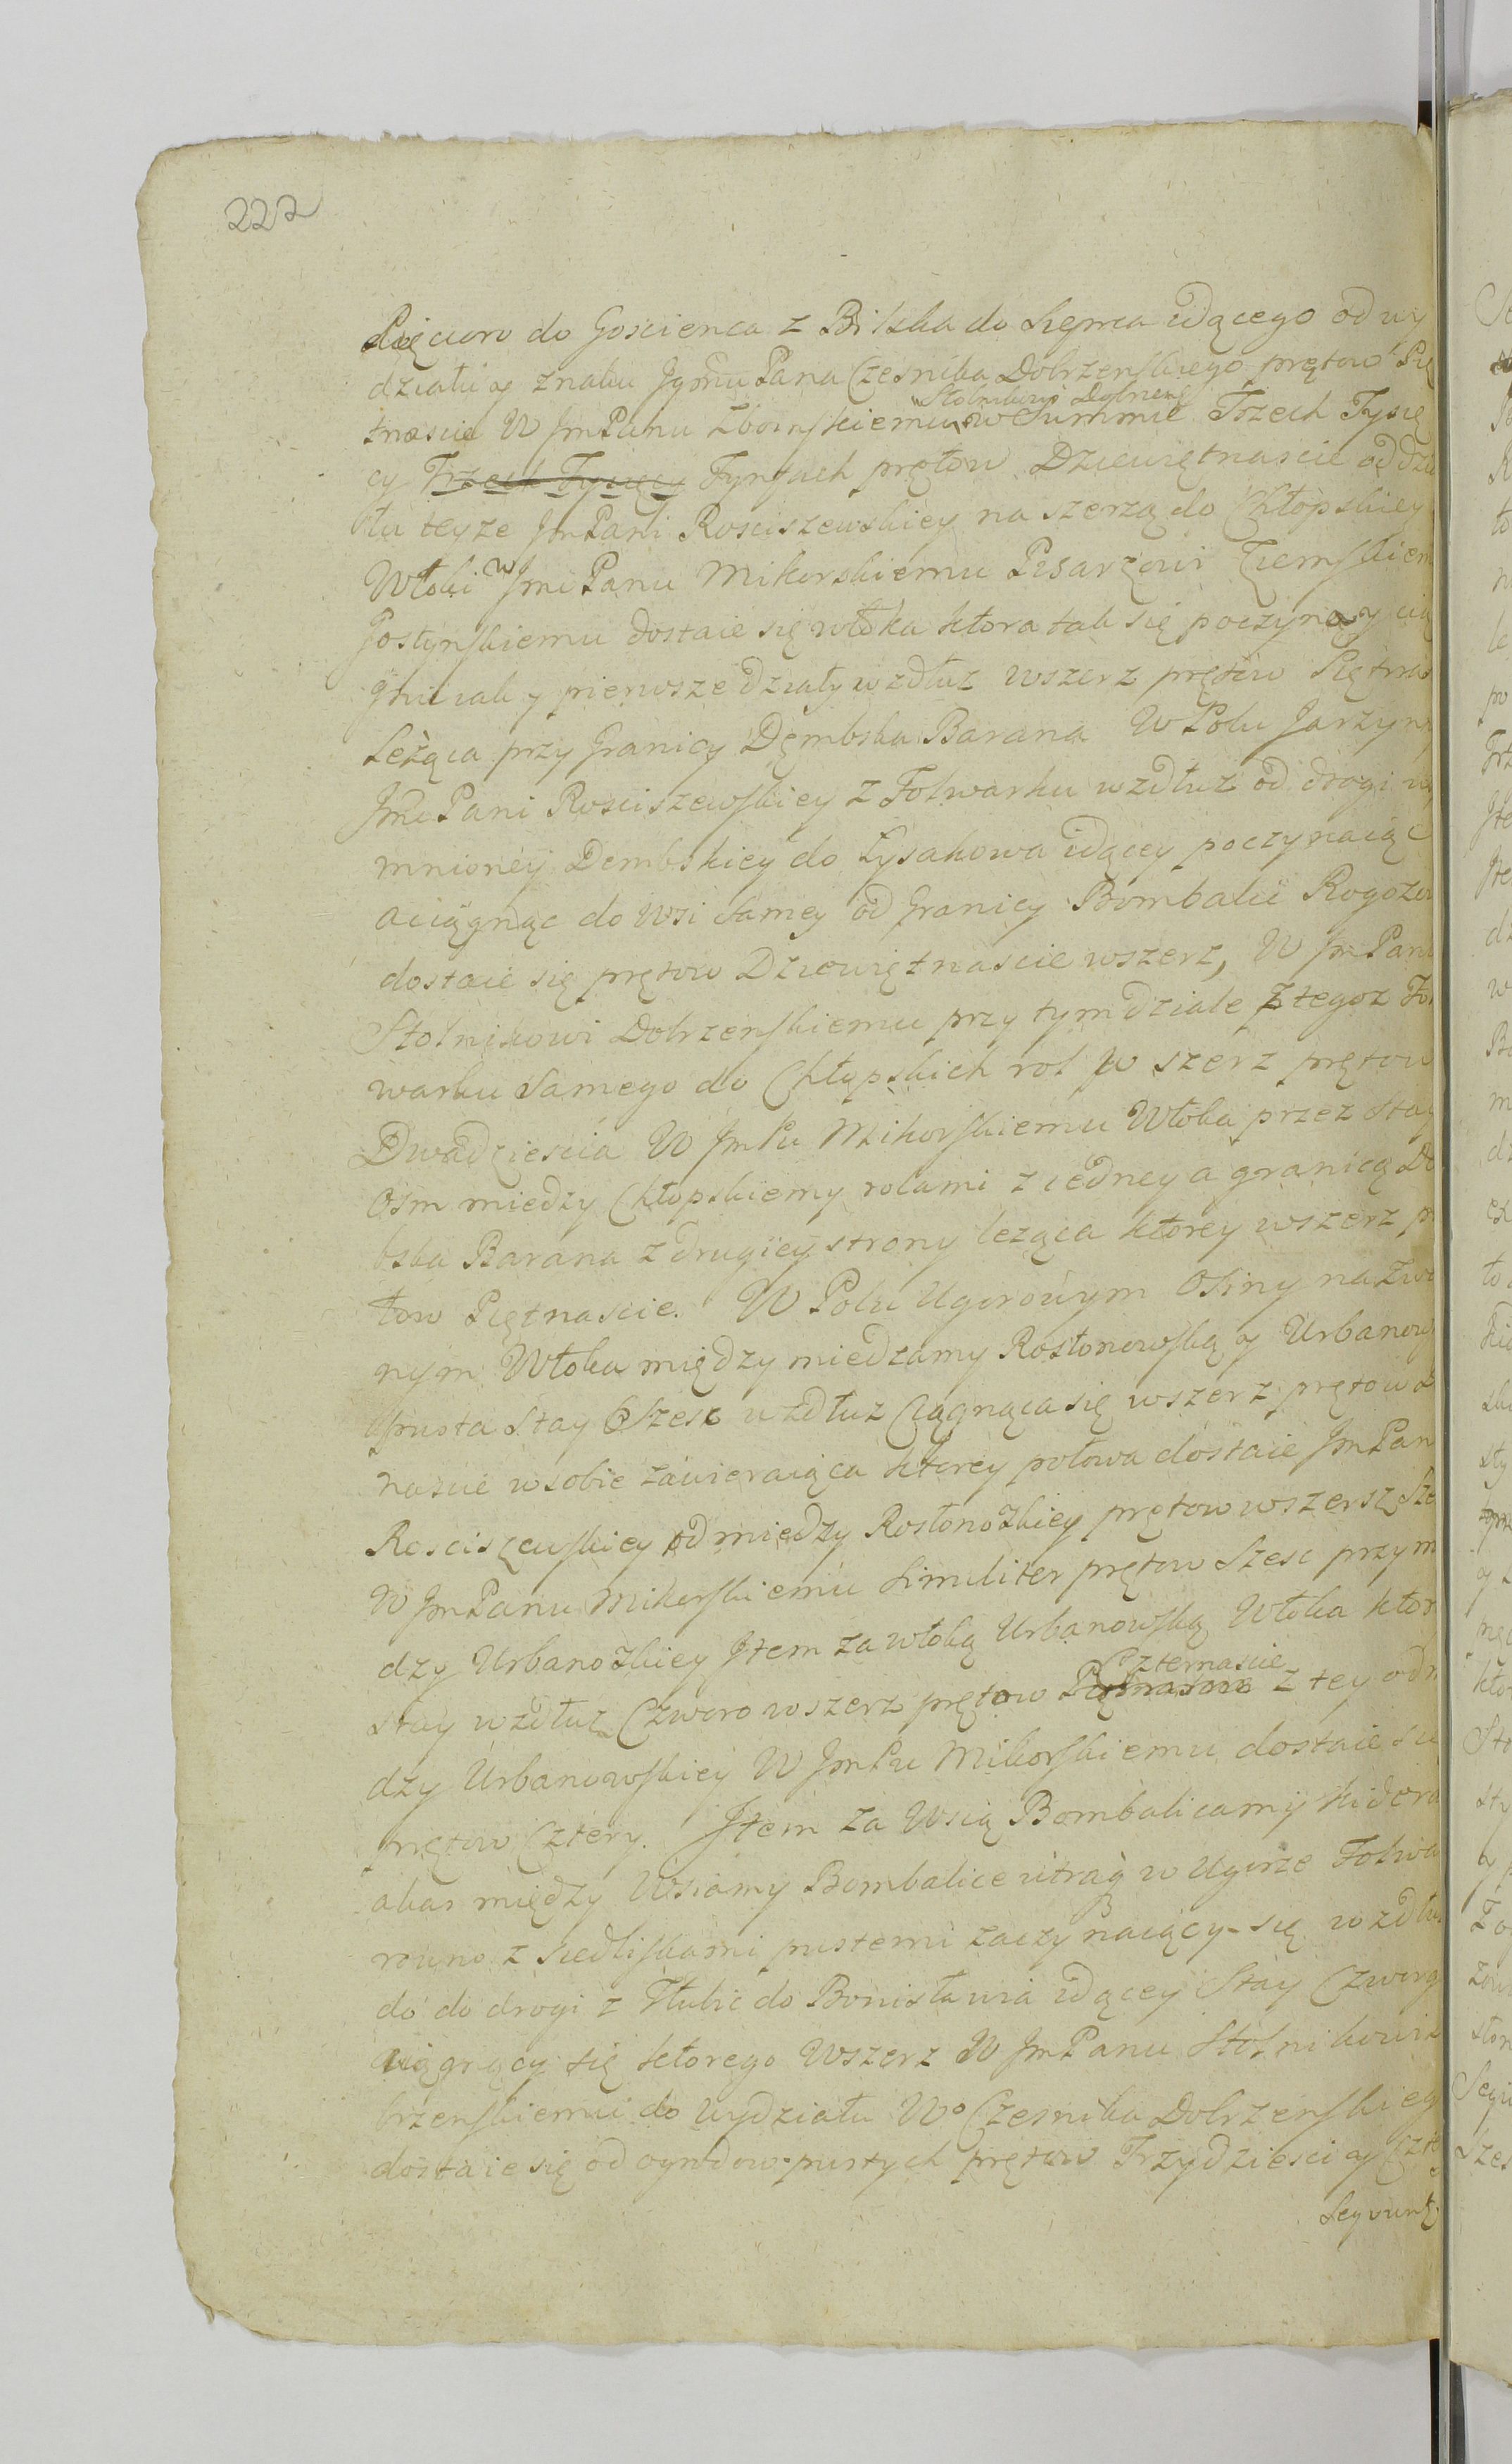 222
Pięcioro do Goscienca z Bilska do Sierpca idącego od wy
działu y znaku Jgmu Pana Czesnika Dobrzenskiego prętow Pię
tnascie W JmPanu Zboinskiemu Stolnikowi Dobrzens w Summie Trzech Tysię
cy Trzech Tysięcy Tynfach prętow Dziewiętnascie od dzia
łu teyze JmPani Rosciszewskiey na szerzą do Chłopskiey
Włoki W Jmci Panu Mikorskiemu Pisarzowi Ziemskiem
Gostynskiemu dostaie się włoka ktora tak się poczyna y cią
gnie iak y pierwsze działy wzdłuz wszerz prętow Piętnas
Leżąca przy Granicy Dęmbska Barana W Polu Jarzyny
Jmci Pani Rosciszewskiey z Folwarku wzdłuz od drogi wy
mnioney Dembskiey do Łysakowa idącey poczynaiąc
a ciągnąc do Wsi samey od Granicy Bombalic Rogozow
dostaie się prętow Dziewiętnascie wszerz, W JmPanu
Stolnikowi Dobrzenskiemu przy tym dziale z tegoz Fol
warku samego do Chłopskich rol w szerz prętow
Dwadziescia W JmPu Mikorskiemu Włoka przez stay
Osm miedzy Chłopskiemy rolami z iedney a granicą De
bska Barana z drugiey strony leząca ktorey wszerz prę
tow Piętnascie. W Polu Ugorowym Osiny nazwa
nym Włoka między miedzamy Rosłonowską y Urbanow
pusta Stay Szesc wzdłuz Ciągnąca się wszerz prętow
nascie w sobie zawieraiąca ktorey połowa dostaie JmPani
Rosciszewskiey od miedzy Rosłonozkiey prętow wszersz Sze
W JmPanu Mikorskiemu Similiter prętow Szesc przy mie
dzy Urbanozkiey Item za włoką Urbanowską Włoka ktor
stay wzdłuz Czworo wszerz prętow Czternascie z tey od mie
dzy Urbanowskiey W JmPu Mikorskiemu dostaie się
prętow Cztery. Item za Wsią Bombalicamy
abas między Wsiamy Bombalice w Ugorze Folwa
rowno z siedliskami pustemi zaczynaiący się wzdłuz
do do drogi z Tłubic do Bonisławia idącey Stay Czworo
ciągnący się ktorego Wszerz W JmPanu Stolnikowi
brzenskiemu do wydziału Wo Czesnika Dobrzenskieg
dostaie się od ogrodow pustych prętow Trzydziesci y Czte
Seqvunt